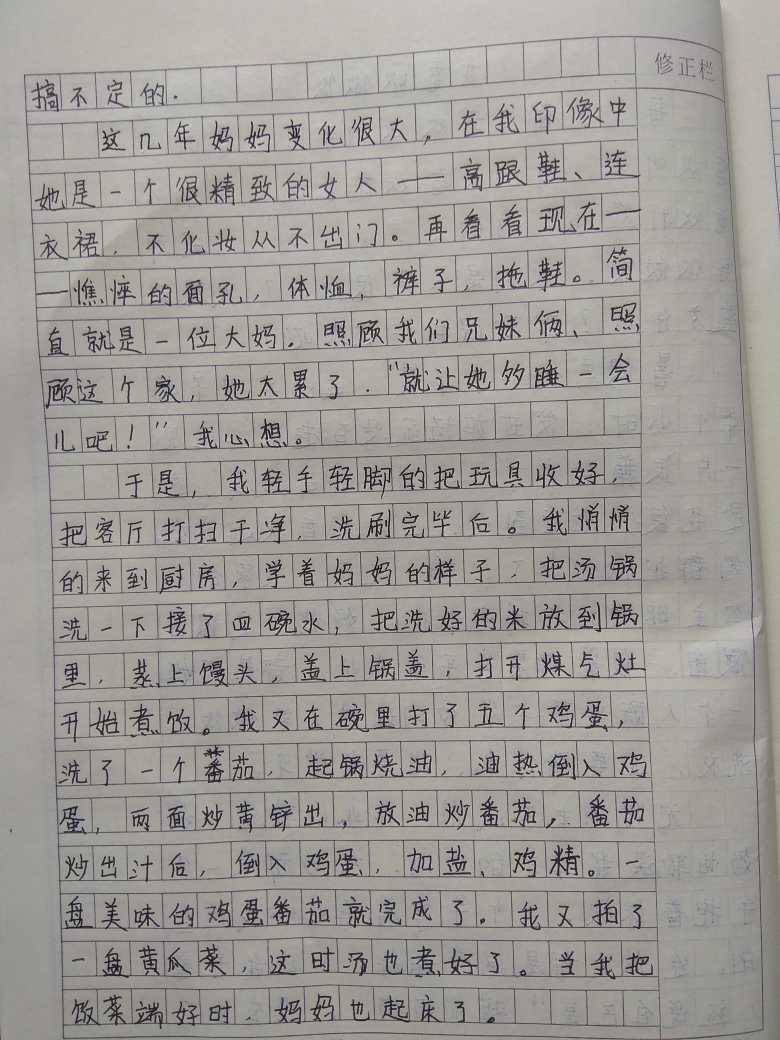 修正栏
搞不定的.
这几年妈妈变化很大，在我印像中
她是一个很精致的女人——高跟鞋、连
衣裙，不化妆从不出门。再看看现在—
—憔悴的面孔，体恤，裤子，拖鞋。简
直就是一位大妈。照顾我们兄妹俩、照
顾这个家，她太累了．“就让她多睡一会
儿吧！”我心想。
于是，我轻手轻脚的把玩具收好，
把客厅打扫干净，洗刷完毕后。我悄悄
的来到厨房，学着妈妈的样子，把汤锅
洗一下接了四碗水，把洗好的米放到锅
里，蒸上馒头，盖上锅盖，打开煤气灶
开始煮饭。我又在碗里打了五个鸡蛋，
洗了一个蕃茄，起锅烧油，油热倒入鸡
蛋，两面炒黄锌出，放油炒番茄，番茄
炒出汁后，倒入鸡蛋，加盐、鸡精。一
盘美味的鸡蛋番茄就完成了。我又拍了
一盘黄瓜菜，这时汤也煮好了。当我把
饭菜端好时，妈妈也起床了。